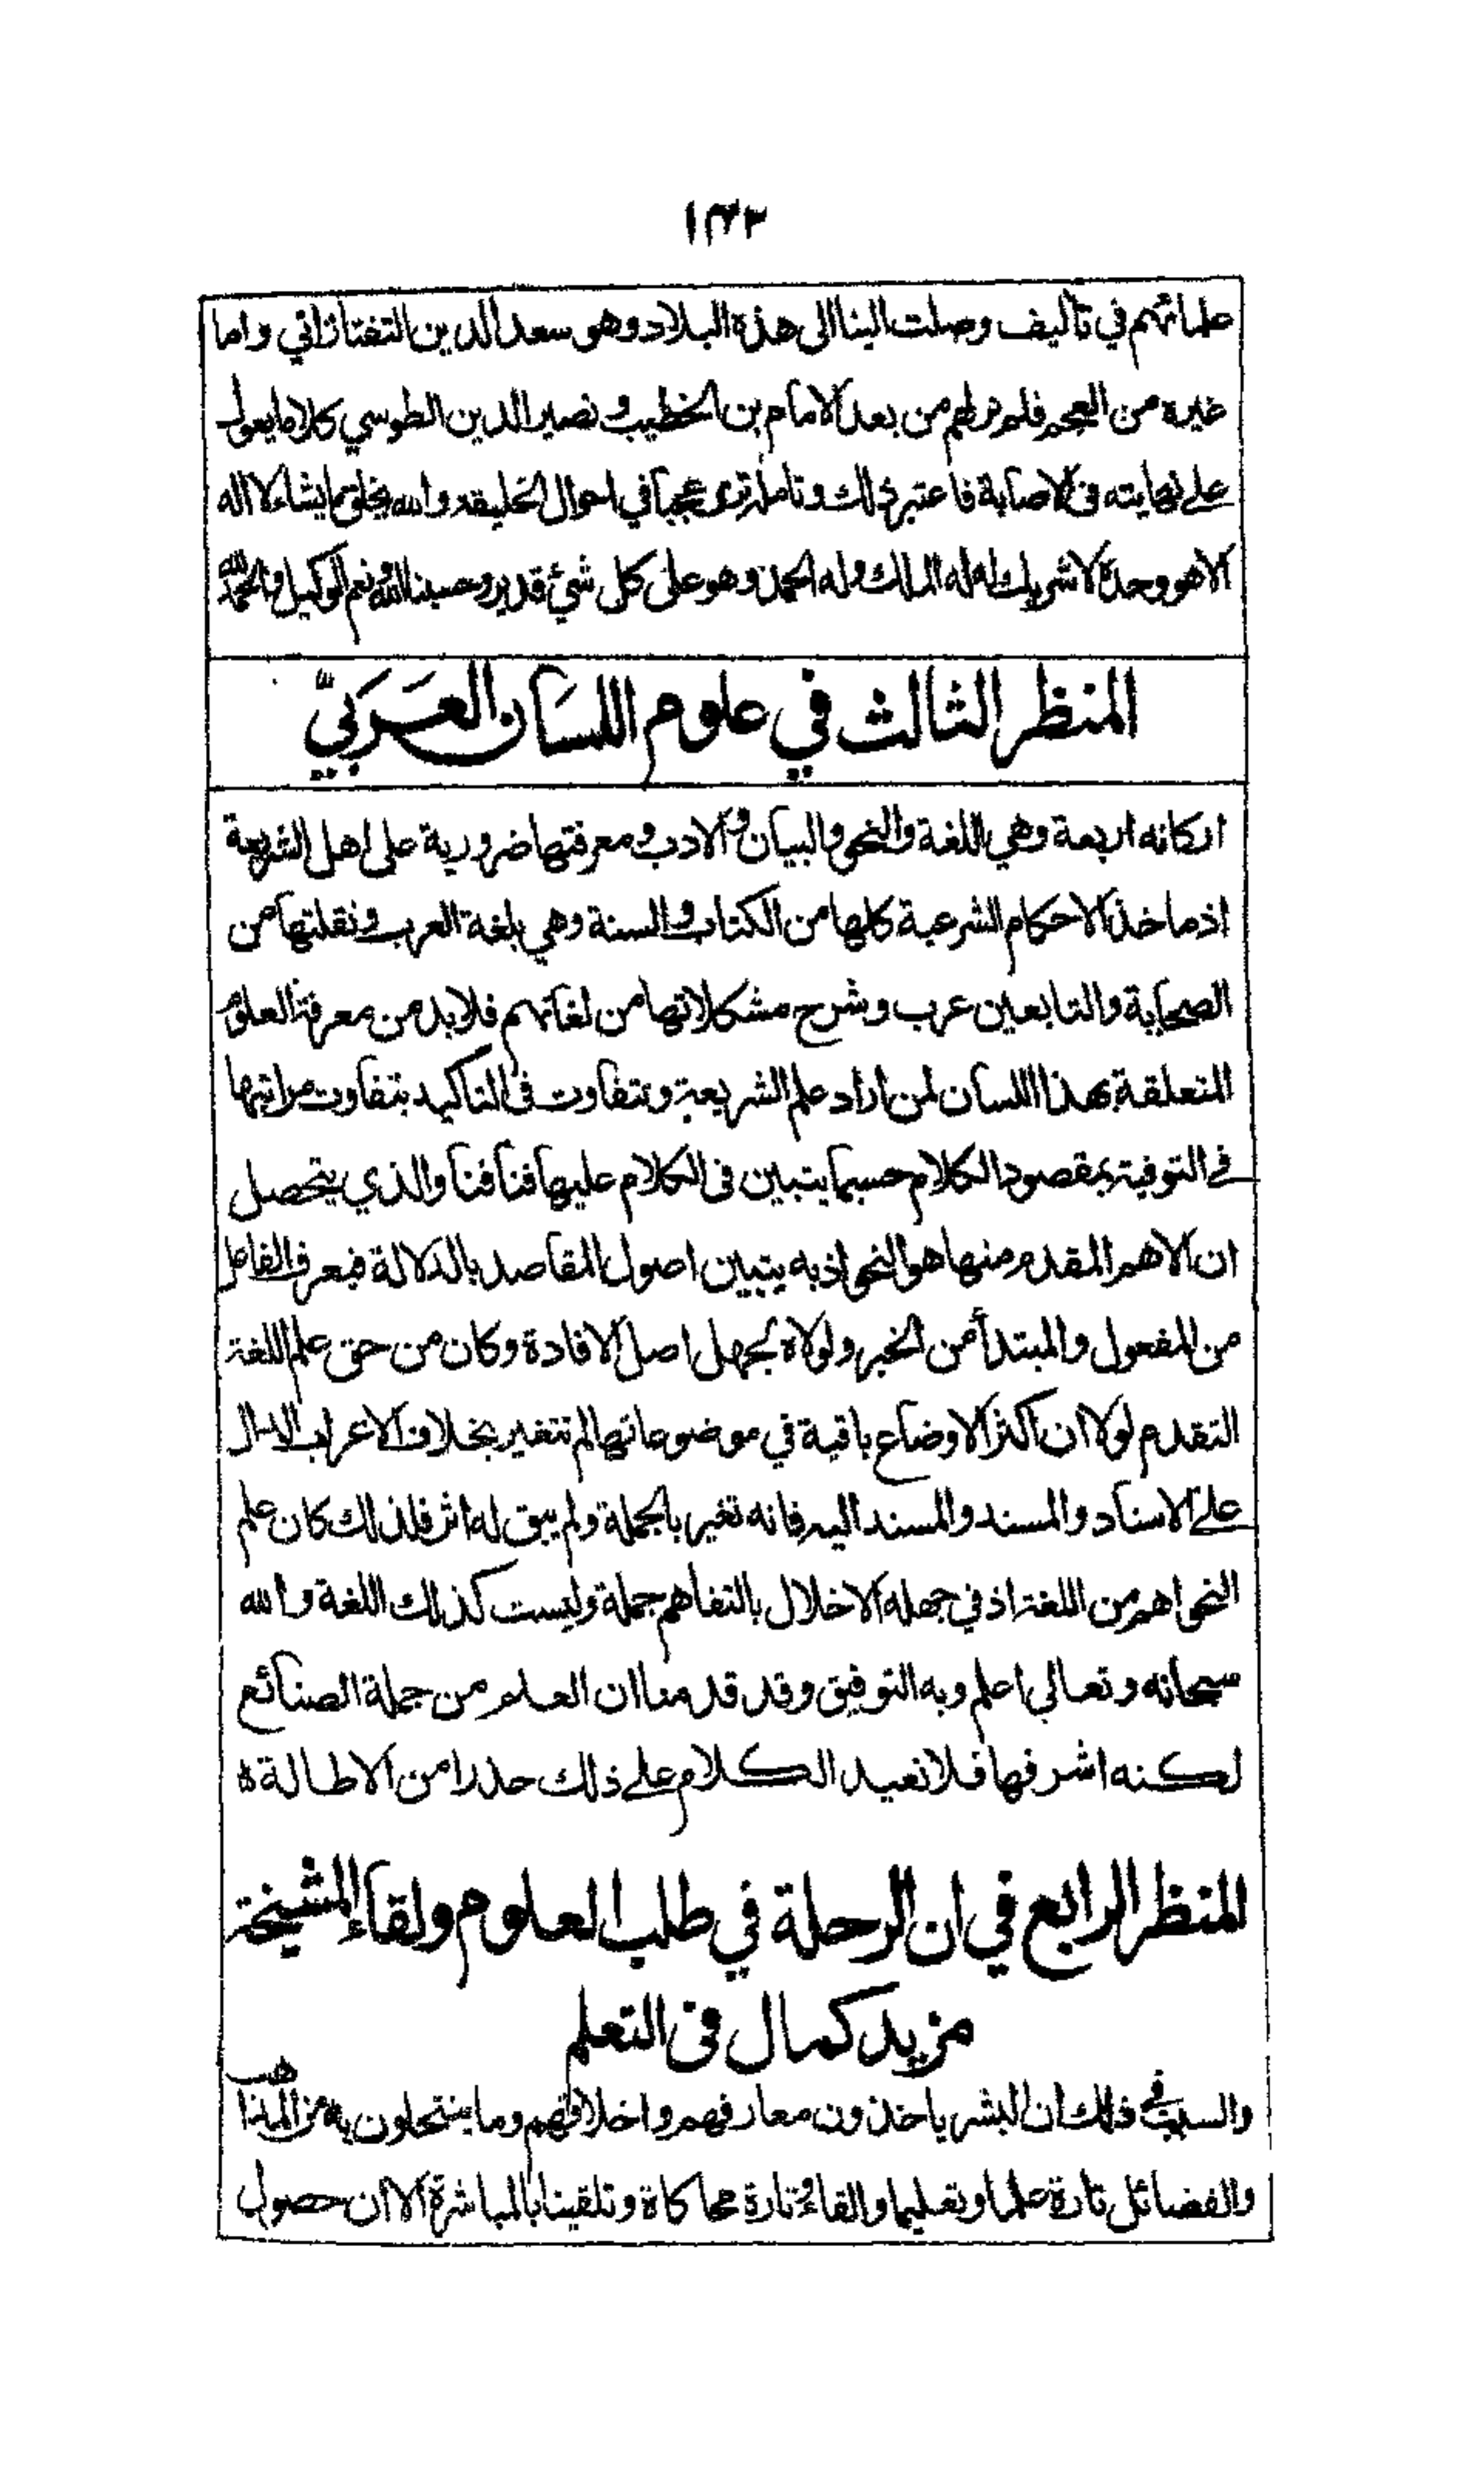 ١٤٣
علمائهم في تأليف وصلت الينا الى هذه البلاد وهو سعد الدين التفتازاني واما
غيره من العجم فلم نر لهم من بعد الامام بن الخطيب ونصير الدين الطوسي كلاما يعول
على نهايته في الاصابة فاعتبر ذلك وتامله ترى عجبا في احوال الخليقة والله يخلق ما يشاء لا اله
الا هو وحده لا شريك له له الملك وله الحمد وهو على كل شئ قدير وحسبنا الله ونعم الوكيل والحمد لله
المنظر الثالث في علوم اللسان العَرَبيّ
اركانه اربعة وهي اللغة والنحو والبيان والادب ومعرفتها ضرورية على اهل الشريعة
اذ ماخذ الاحكام الشرعية كلها من الكتاب والسنة وهي بلغة العرب ونقلتها من
الصحابة والتابعين عرب وشرح مشكلاتها من لغاتهم فلا بد من معرفة العلوم
المتعلقة بهذا اللسان لمن اراد علم الشريعة وتتفاوت في التاكيد بتفاوت مراتبها
في التوفية بمقصود الكلام حسبما يتبين في الكلام عليها فنا فنا والذي يتحصل
ان الاهم المقدم منها هو النحو اذ به يتبين اصول المقاصد بالدلالة فيعرف الفاعل
من المفعول والمبتدأ من الخبر ولولاه لجهل اصل الافادة وكان من حق علم اللغة
التقدم لولا ان اكثر الاوضاع باقية في موضوعاتها لم تتغير بخلاف الاعراب الدال
على الاسناد والمسند والمسند اليه فانه تغير بالجملة ولم يبق له اثر فلذلك كان علم
النحو اهم من اللغة اذ في جهله الاخلال بالتفاهم جملة وليست كذلك اللغة والله
سبحانه وتعالى اعلم وبه التوفيق وقد قدمنا ان العلم من جملة الصنائع
لكنه اشرفها فلا نعيد الكلام على ذلك حذرا من الاطالة ه
المنظر الرابع في ان الرحلة في طلب العلوم ولقاء المشيخة
مزيد كمال في التعلم
والسبب في ذلك ان البشر ياخذون معارفهم واخلاقهم وما ينتحلون به من المذاهب
والفضائل تارة علما وتعليما والقاء وتارة محاكاة وتلقينا بالمباشرة الا ان حصول